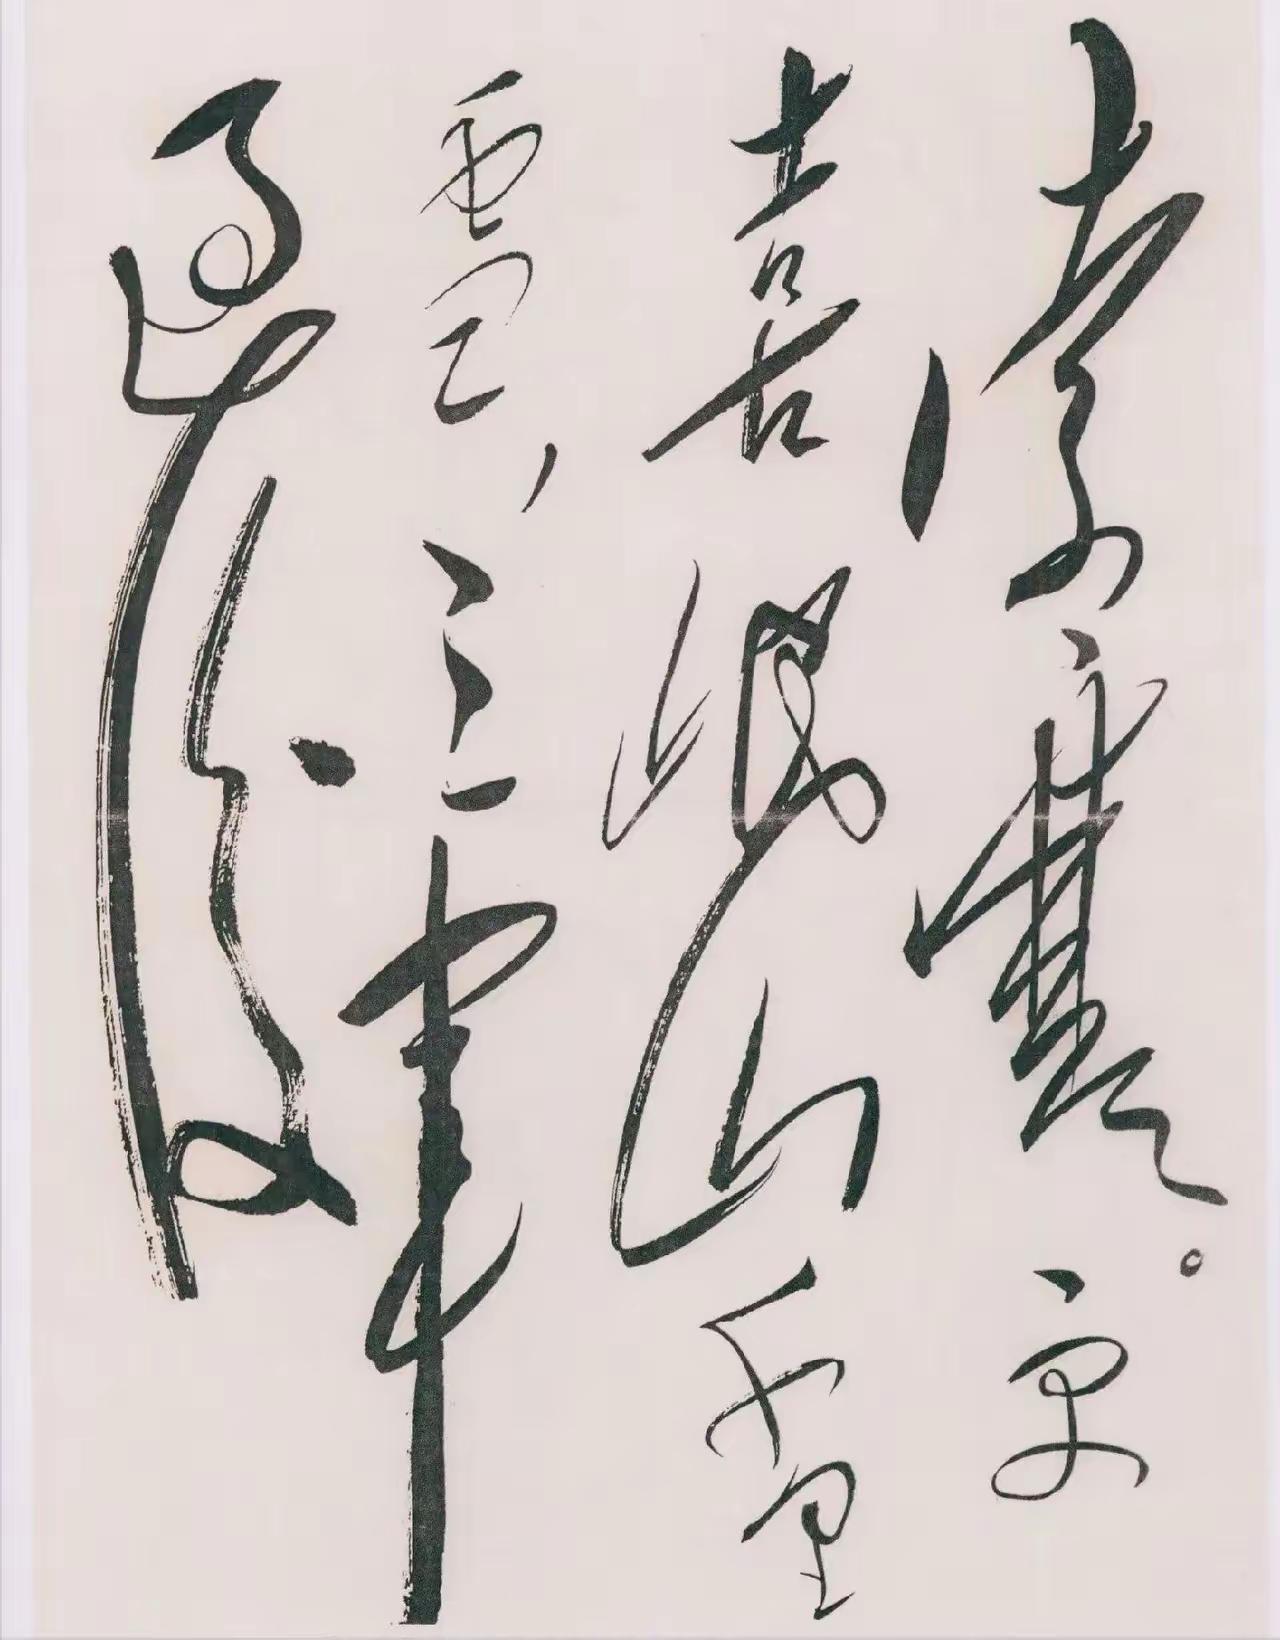 索寒。更
喜岷山千里
雪，三军
过后